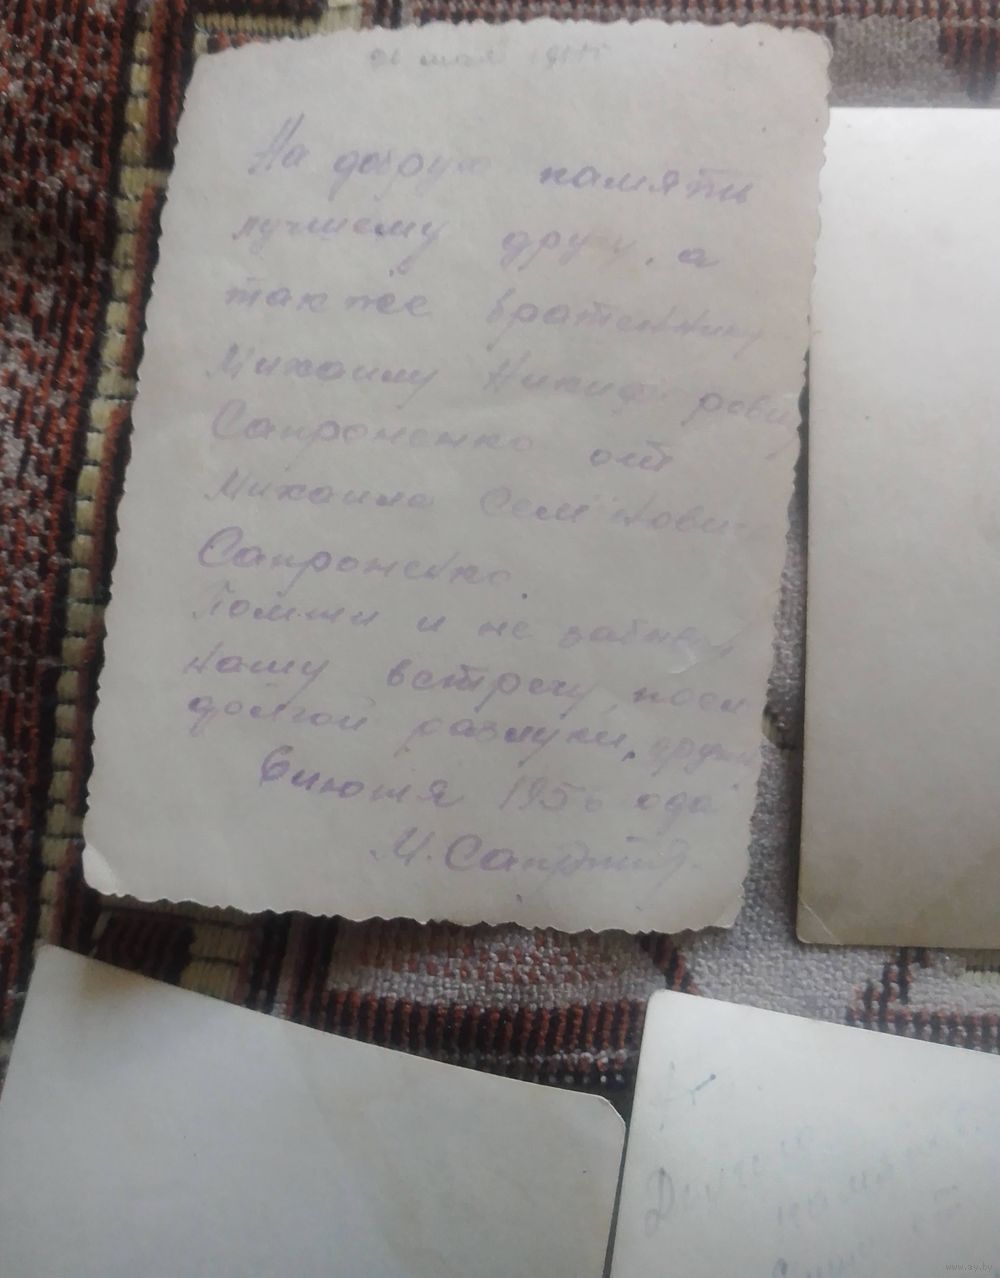 На добрую памяти
лучшему другу, а
также братенику
Михаилу Никифоровичу
Сапроненко от
Михаила Семёновича
Сапроненко.
Помни и не забывай
нашу встречу, посл
долгой разлуки,
6 июня 1956 ода
М. Сапроненко
www.ay.by